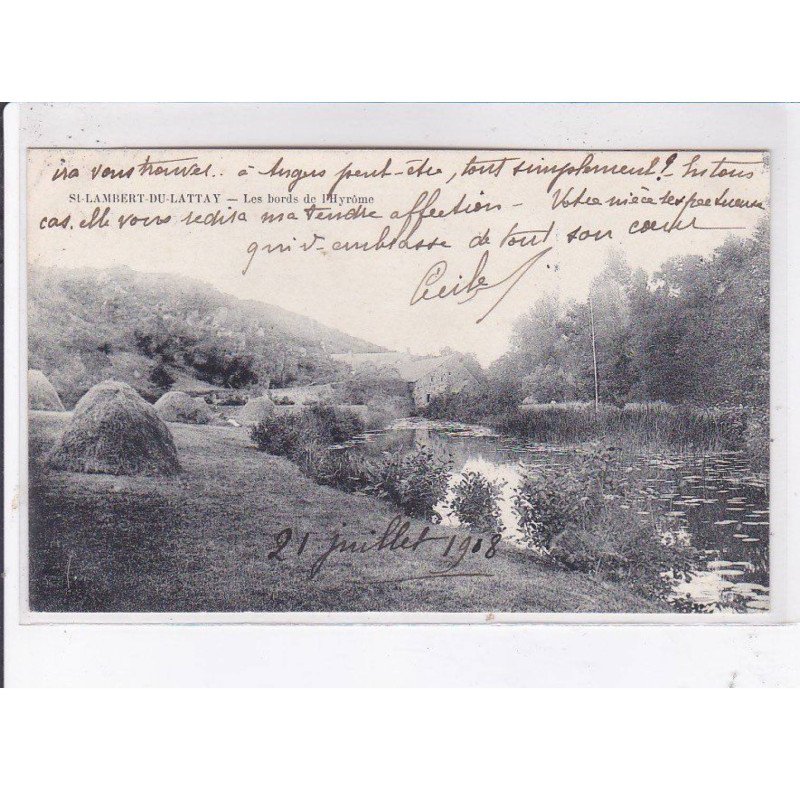 ira vous trouver.. à Angers peut-être, tout simplement? - En tous
ST-LAMBERT-DU-LATTAY — Les bords de l'Hyrôme
cas. elle vous redira ma tendre affection - Votre nièce respectueuse
qui v- embrasse de tout son cœur
Cécile
21 juillet 1908